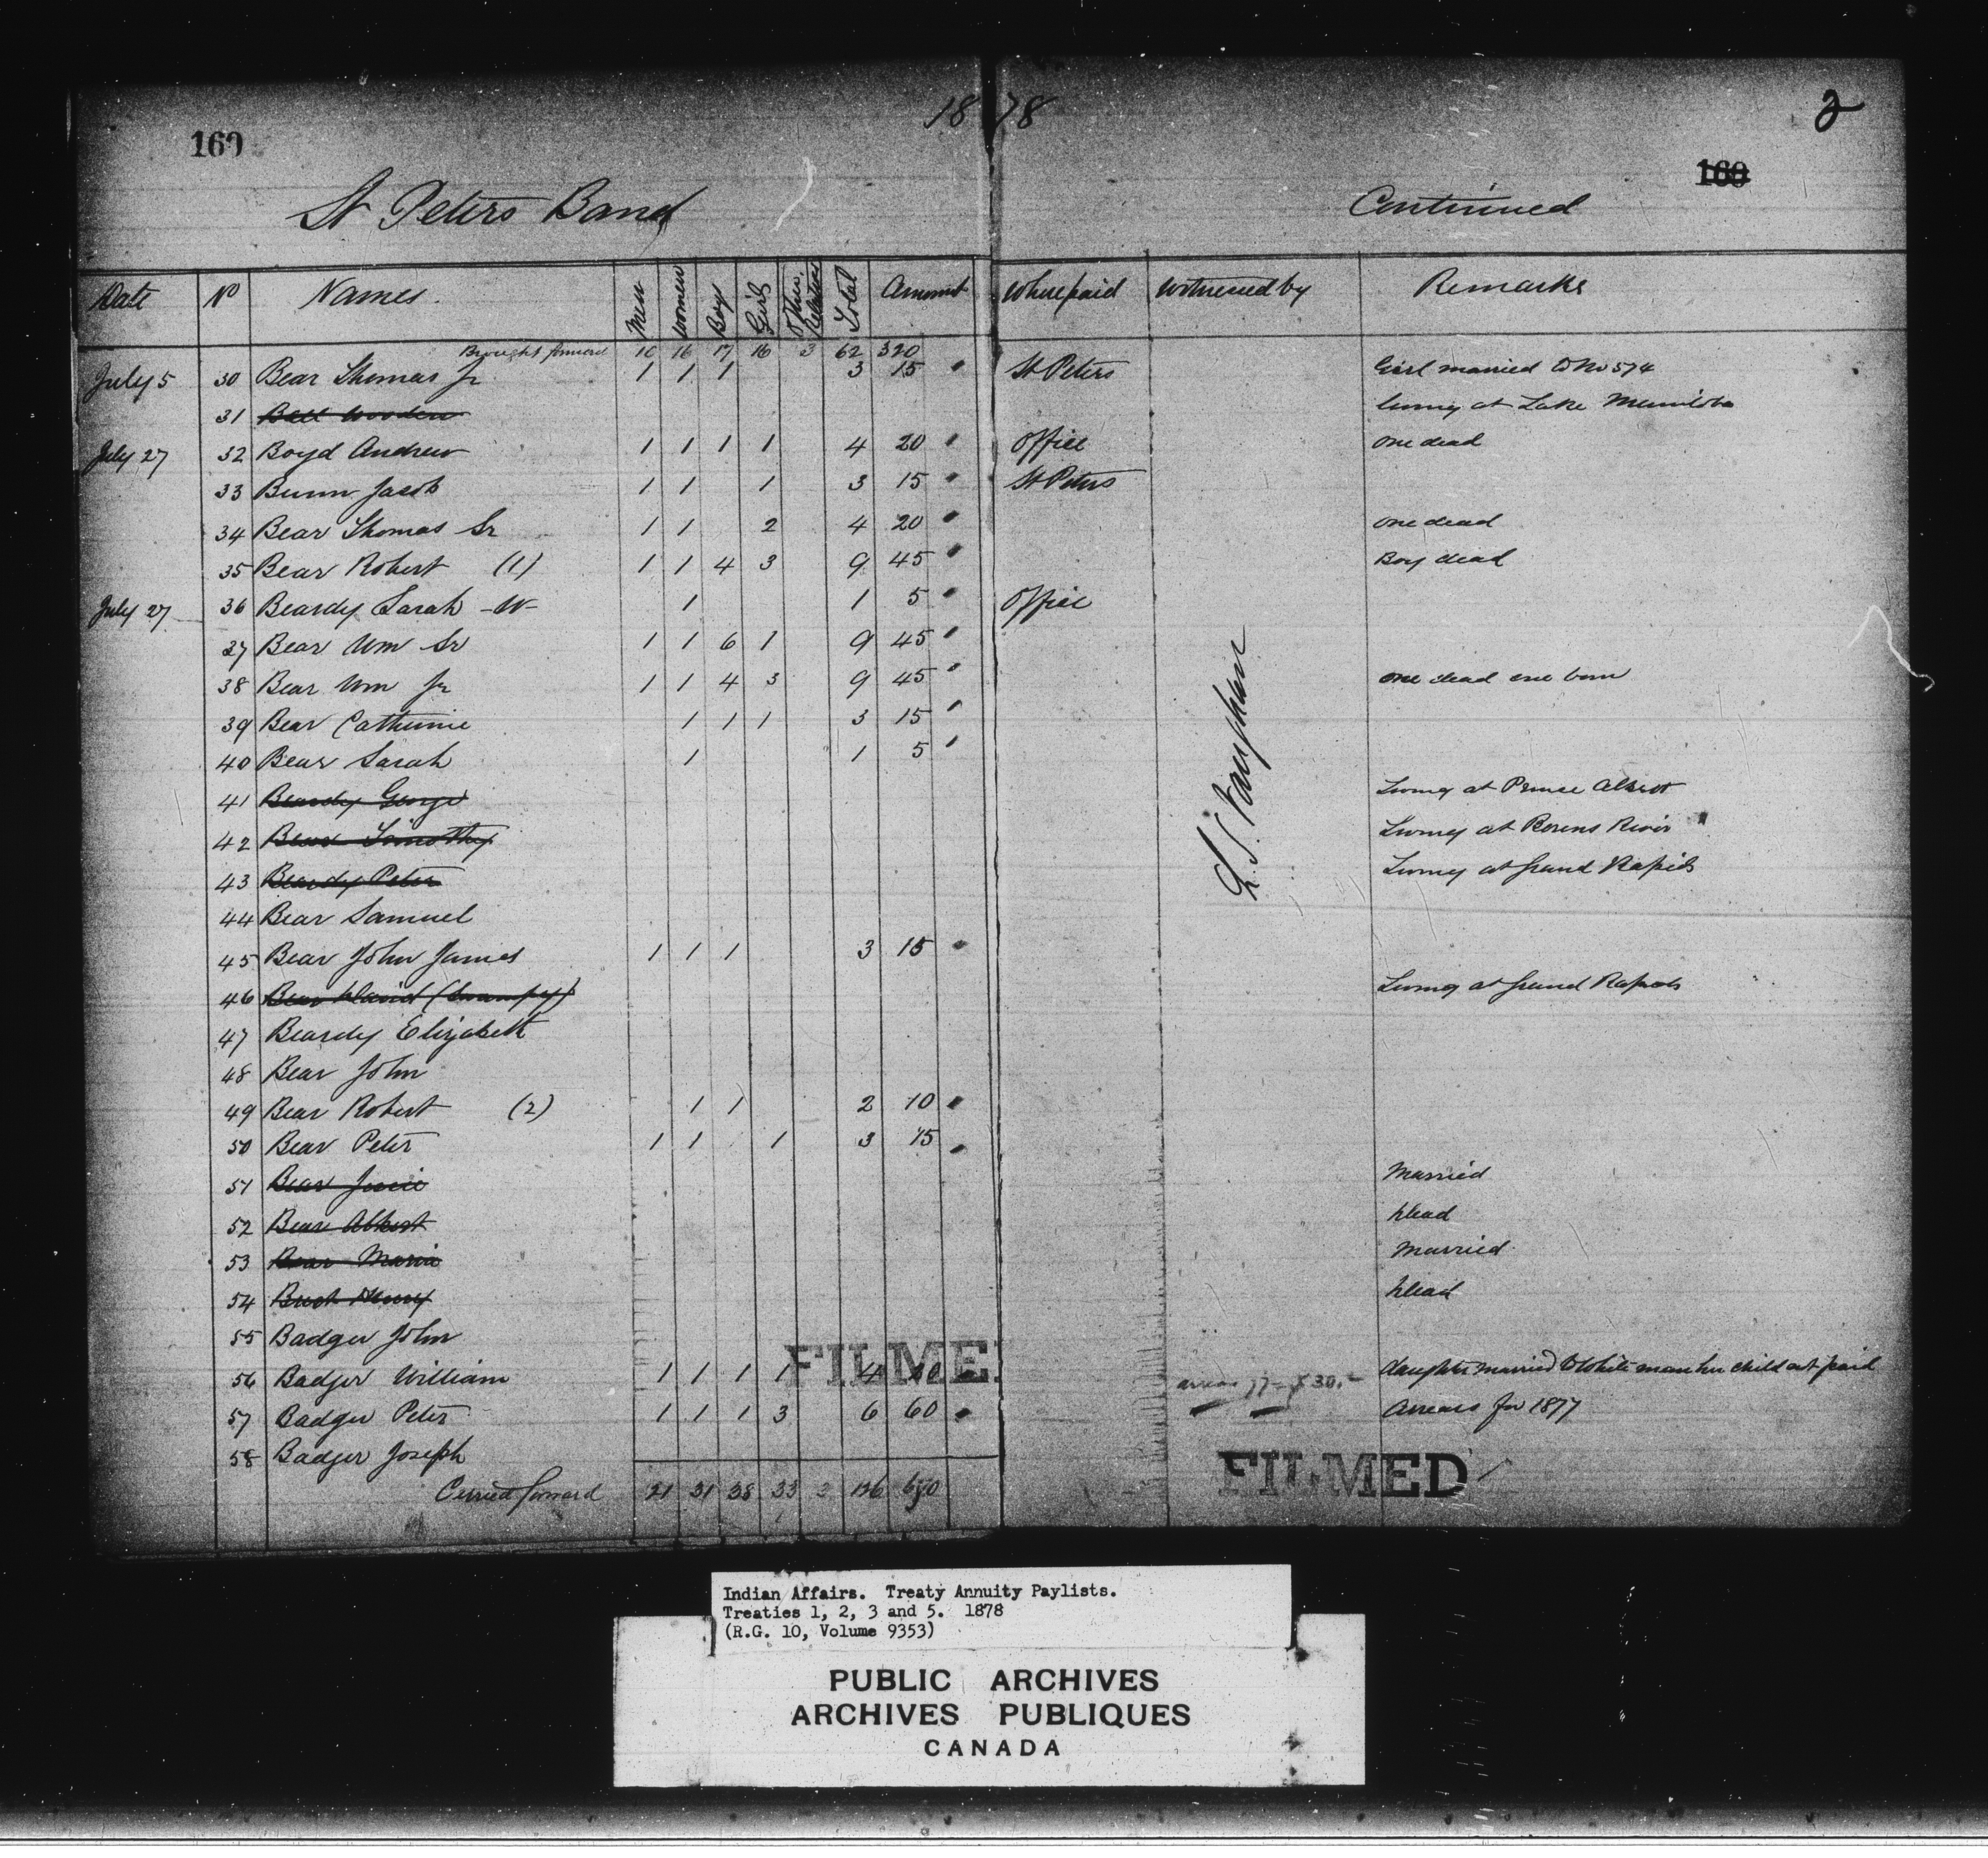 1878
2
160
160
St Peters Band
Continued
Date No Names. Men Women Boys Girls Other Relatives Total Amount Where paid Witnessed by Remarks
Brought forward 10 16 17 16 3 62 320
July 5 30 Bear Thomas Jr 1 1 1 3 15 St Peters Girl married to No 574
31 Bell Wooden living at Lake Manitoba
July 27 32 Boyd Andrew 1 1 1 1 4 20 Office one dead
33 Bunn Jacob 1 1 1 3 15 St Peters
34 Bear Thomas Sr 1 1 2 4 20 one dead
35 Bear Robert (1) 1 1 4 3 9 45 Boy dead
July 27 36 Beardy Sarah -W- 1 1 5 Office
37 Bear Wm Sr 1 1 6 1 9 45
38 Bear Wm Jr 1 1 4 3 9 45 one dead one born
39 Bear Catherine 1 1 1 3 15
40 Bear Sarah 1 1 5
41 Beardy George Living at Prince Albert
42 Bear Timothy Living at Berens River
43 Beardy Peter Living at Grand Rapids
44 Bear Samuel
45 Bear John James 1 1 1 3 15
46 Bear David (Swampy) Living at Grand Rapids
47 Beardy Elizabeth
48 Bear John
49 Bear Robert (2) 1 1 2 10
50 Bear Peter 1 1 1 3 15
51 Bear Married
52 Bear Albert Dead
53 Bear Maria Married
54 Henry Dead
55 Badger John
56 Badger William 1 1 1 1 4 daughter married to White man her child not paid
57 Badger Peter 1 1 1 3 6 60 arrears 77 - $30.- Arrears for 1877
58 Badger Joseph
Carried forward 21 31 38 33 3 126
L. S. Vaughan
FILMED
FILMED
Indian Affairs. Treaty Annuity Paylists.
Treaties 1, 2, 3 and 5. 1878
(R.G. 10, Volume 9353)
PUBLIC ARCHIVES
ARCHIVES PUBLIQUES
CANADA